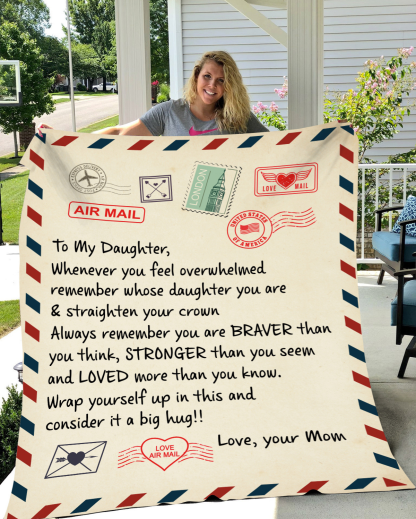 LONDON
LOVE MAIL
AIR MAIL
UNITED STATES
OF AMERICA
To My Daughter,
Whenever you feel overwhelmed
remember whose daughter you are
& straighten your crown
Always remember you are BRAVER than
you think, STRONGER than you seem
and LOVED more than you know.
Wrap yourself up in this and
consider it a big hug!!
Love, your Mom
LOVE
AIR MAIL